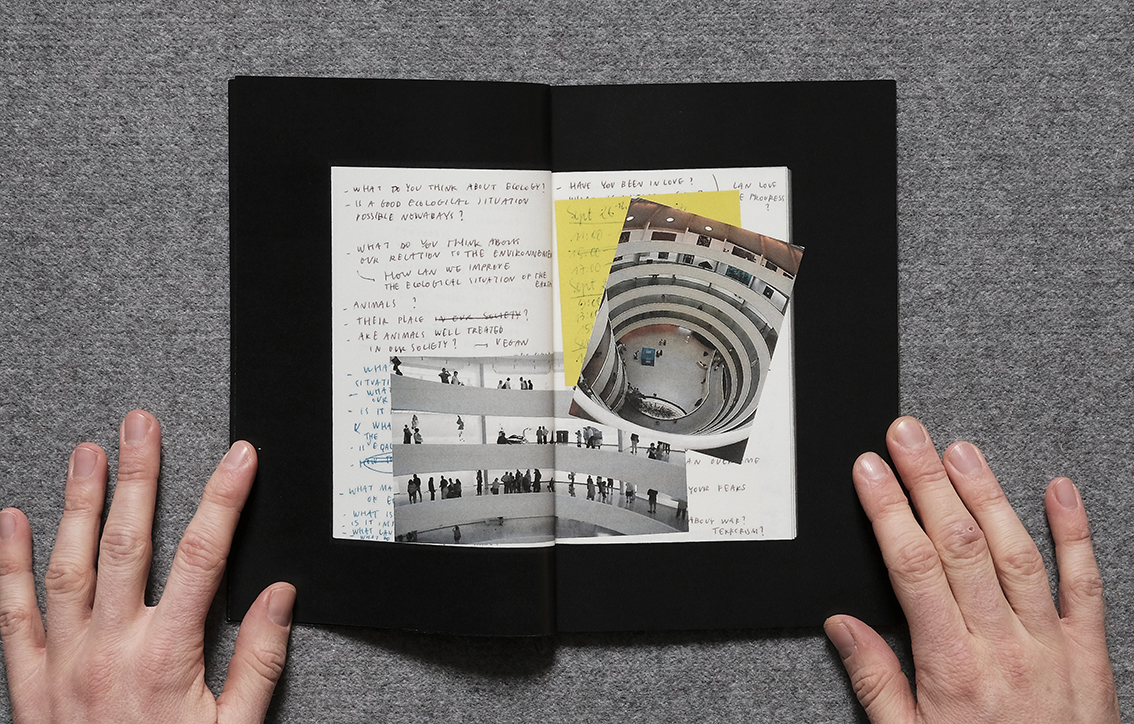 - WHAT DO YOU THINK ABOUT ECOLOGY?
- IS A GOOD ECOLOGICAL SITUATION
POSSIBLE NOWADAYS?
- WHAT DO YOU THINK ABOUT
OUR RELATION TO THE ENVIRONNEME
HOW CAN WE IMPROVE
THE ECOLOGICAL SITUATION OF THE
EARTH
- ANIMALS ?
- THEIR PLACE IN OUR SOCIETY?
- ARE ANIMALS WELL TREATED
IN OUR SOCIETY? → VEGAN
- WHAT
SITUATI
- WHAT
OUR
- IS IT
WHA
THE
- WHAT MA
OF E
- WHAT IS
- IS IT IMP
- WHAT CAU
- HAVE YOU BEEN IN LOVE?
CAN LOVE
E PROGRESS
?
Sept 26th
11:00 -
15:00 -
17:00 -
Sept
AN OVERCOME
YOUR FEARS
ABOUT WAR?
TERRORISM?